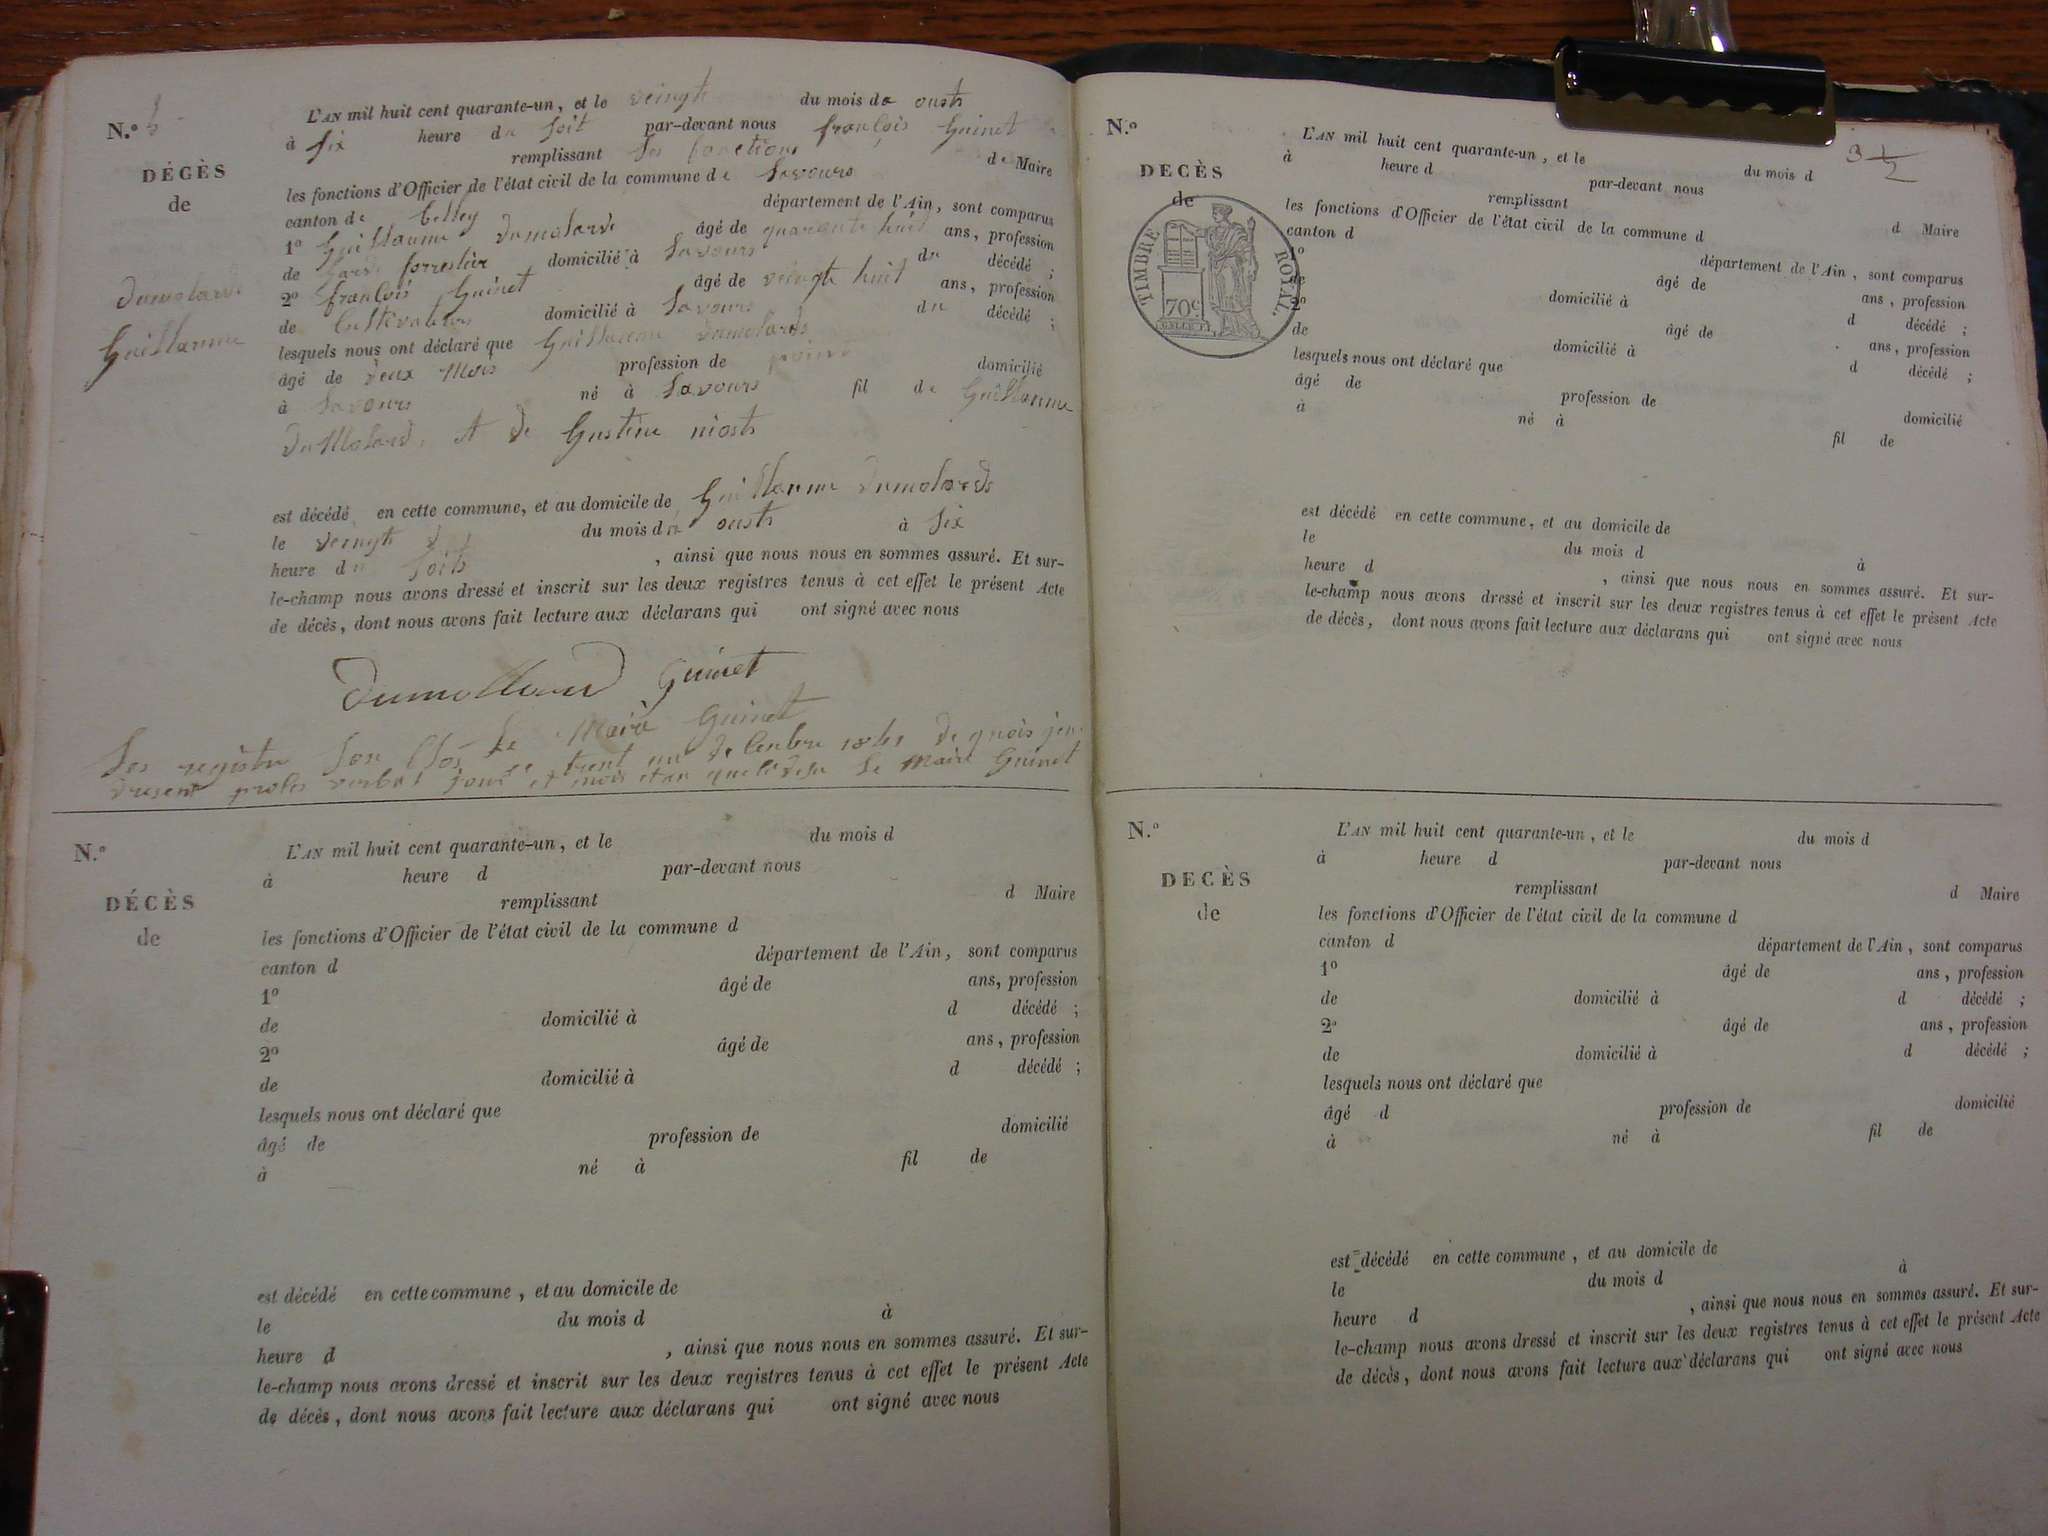 N.º
DÉCÈS
de
Dumolard
Guillaume
L'AN mil huit cent quarante-un, et le veingt du mois de oust
à six heure du soit par-devant nous françois Guinet
remplissant Les fonctions de Maire
les fonctions d'Officier de l'état civil de la commune de Lavours
canton de belley département de l'Ain, sont comparus
1º Guillaume Dumolard âgé de quarente huit ans, profession
de Garde forrestier domicilié à Lavours du décédé ;
2º françois Guinet âgé de veingt huit ans, profession
de Cultivateur domicilié à Lavours du décédé ;
lesquels nous ont déclaré que Guillaume Dumolard
âgé de deux mois profession de point domicilié
à Lavours né à Lavours fil de Guillaume
Dumolard, et de Gustine niost
est décédé en cette commune, et au domicile de Guillaume Dumolard
le veingt du mois du oust à six
heure du soit , ainsi que nous nous en sommes assuré. Et sur-
le-champ nous avons dressé et inscrit sur les deux registres tenus à cet effet le présent Acte
de décès, dont nous avons fait lecture aux déclarans qui ont signé avec nous
Dumollard Guinet
Le Maire Guinet
registre Clos Le trent un de 1841 De
verbal jour et mois et an que Le Maire Guinet
N.º
DÉCÈS
de
L'AN mil huit cent quarante-un, et le du mois d
à heure d par-devant nous
remplissant d Maire
les fonctions d'Officier de l'état civil de la commune d
canton d département de l'Ain, sont comparus
1º âgé de ans, profession
de domicilié à d décédé ;
2º âgé de ans, profession
de domicilié à d décédé ;
lesquels nous ont déclaré que
âgé de profession de domicilié
à né à fil de
est décédé en cette commune, et au domicile de
le du mois d à
heure d , ainsi que nous nous en sommes assuré. Et sur-
le-champ nous avons dressé et inscrit sur les deux registres tenus à cet effet le présent Acte
de décès, dont nous avons fait lecture aux déclarans qui ont signé avec nous
3 1/2
N.º
DECÈS
de
TIMBRE ROYAL.
70c
L'AN mil huit cent quarante-un, et le du mois d
à heure d par-devant nous
remplissant d Maire
les fonctions d'Officier de l'état civil de la commune d
canton d département de l'Ain, sont comparus
1º âgé de ans, profession
de domicilié à d décédé ;
2º âgé de ans, profession
de domicilié à d décédé ;
lesquels nous ont déclaré que
âgé de profession de domicilié
à né à fil de
est décédé en cette commune, et au domicile de
le du mois d à
heure d , ainsi que nous nous en sommes assuré. Et sur-
le-champ nous avons dressé et inscrit sur les deux registres tenus à cet effet le présent Acte
de décès, dont nous avons fait lecture aux déclarans qui ont signé avec nous
N.º
DECÈS
de
L'AN mil huit cent quarante-un, et le du mois d
à heure d par-devant nous
remplissant d Maire
les fonctions d'Officier de l'état civil de la commune d
canton d département de l'Ain, sont comparus
1º âgé de ans, profession
de domicilié à d décédé ;
2º âgé de ans, profession
de domicilié à d décédé ;
lesquels nous ont déclaré que
âgé d profession de domicilié
à né à fil de
est décédé en cette commune, et au domicile de
le du mois d à
heure d , ainsi que nous nous en sommes assuré. Et sur-
le-champ nous avons dressé et inscrit sur les deux registres tenus à cet effet le présent Acte
de décès, dont nous avons fait lecture aux déclarans qui ont signé avec nous